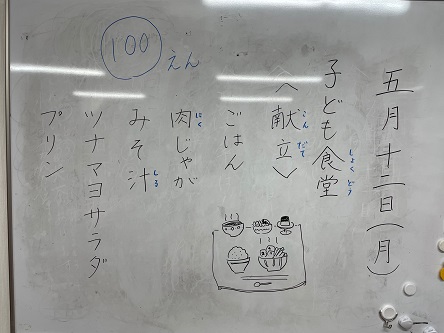 五月十二日(月)
子ども食堂
しょくどう
〈献立〉
こんだて
ごはん
肉じゃが
にく
みそ汁
しる
ツナマヨサラダ
プリン
100えん